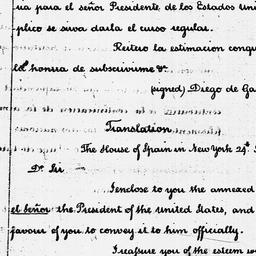 ua para el señor Presidente de los Estados Uni
plico se sirva darla el curso regular.
Reitero la estimacion conqu
la honra de subscrivirme &.
(signed) Diego de Ga
Translation
The House of Spain in New York 24th S
Dr Sir
I enclose to you the annexed
el Señor the President of the United States, and
favour of you to convey it to him officially.
I reassure you of the esteem w